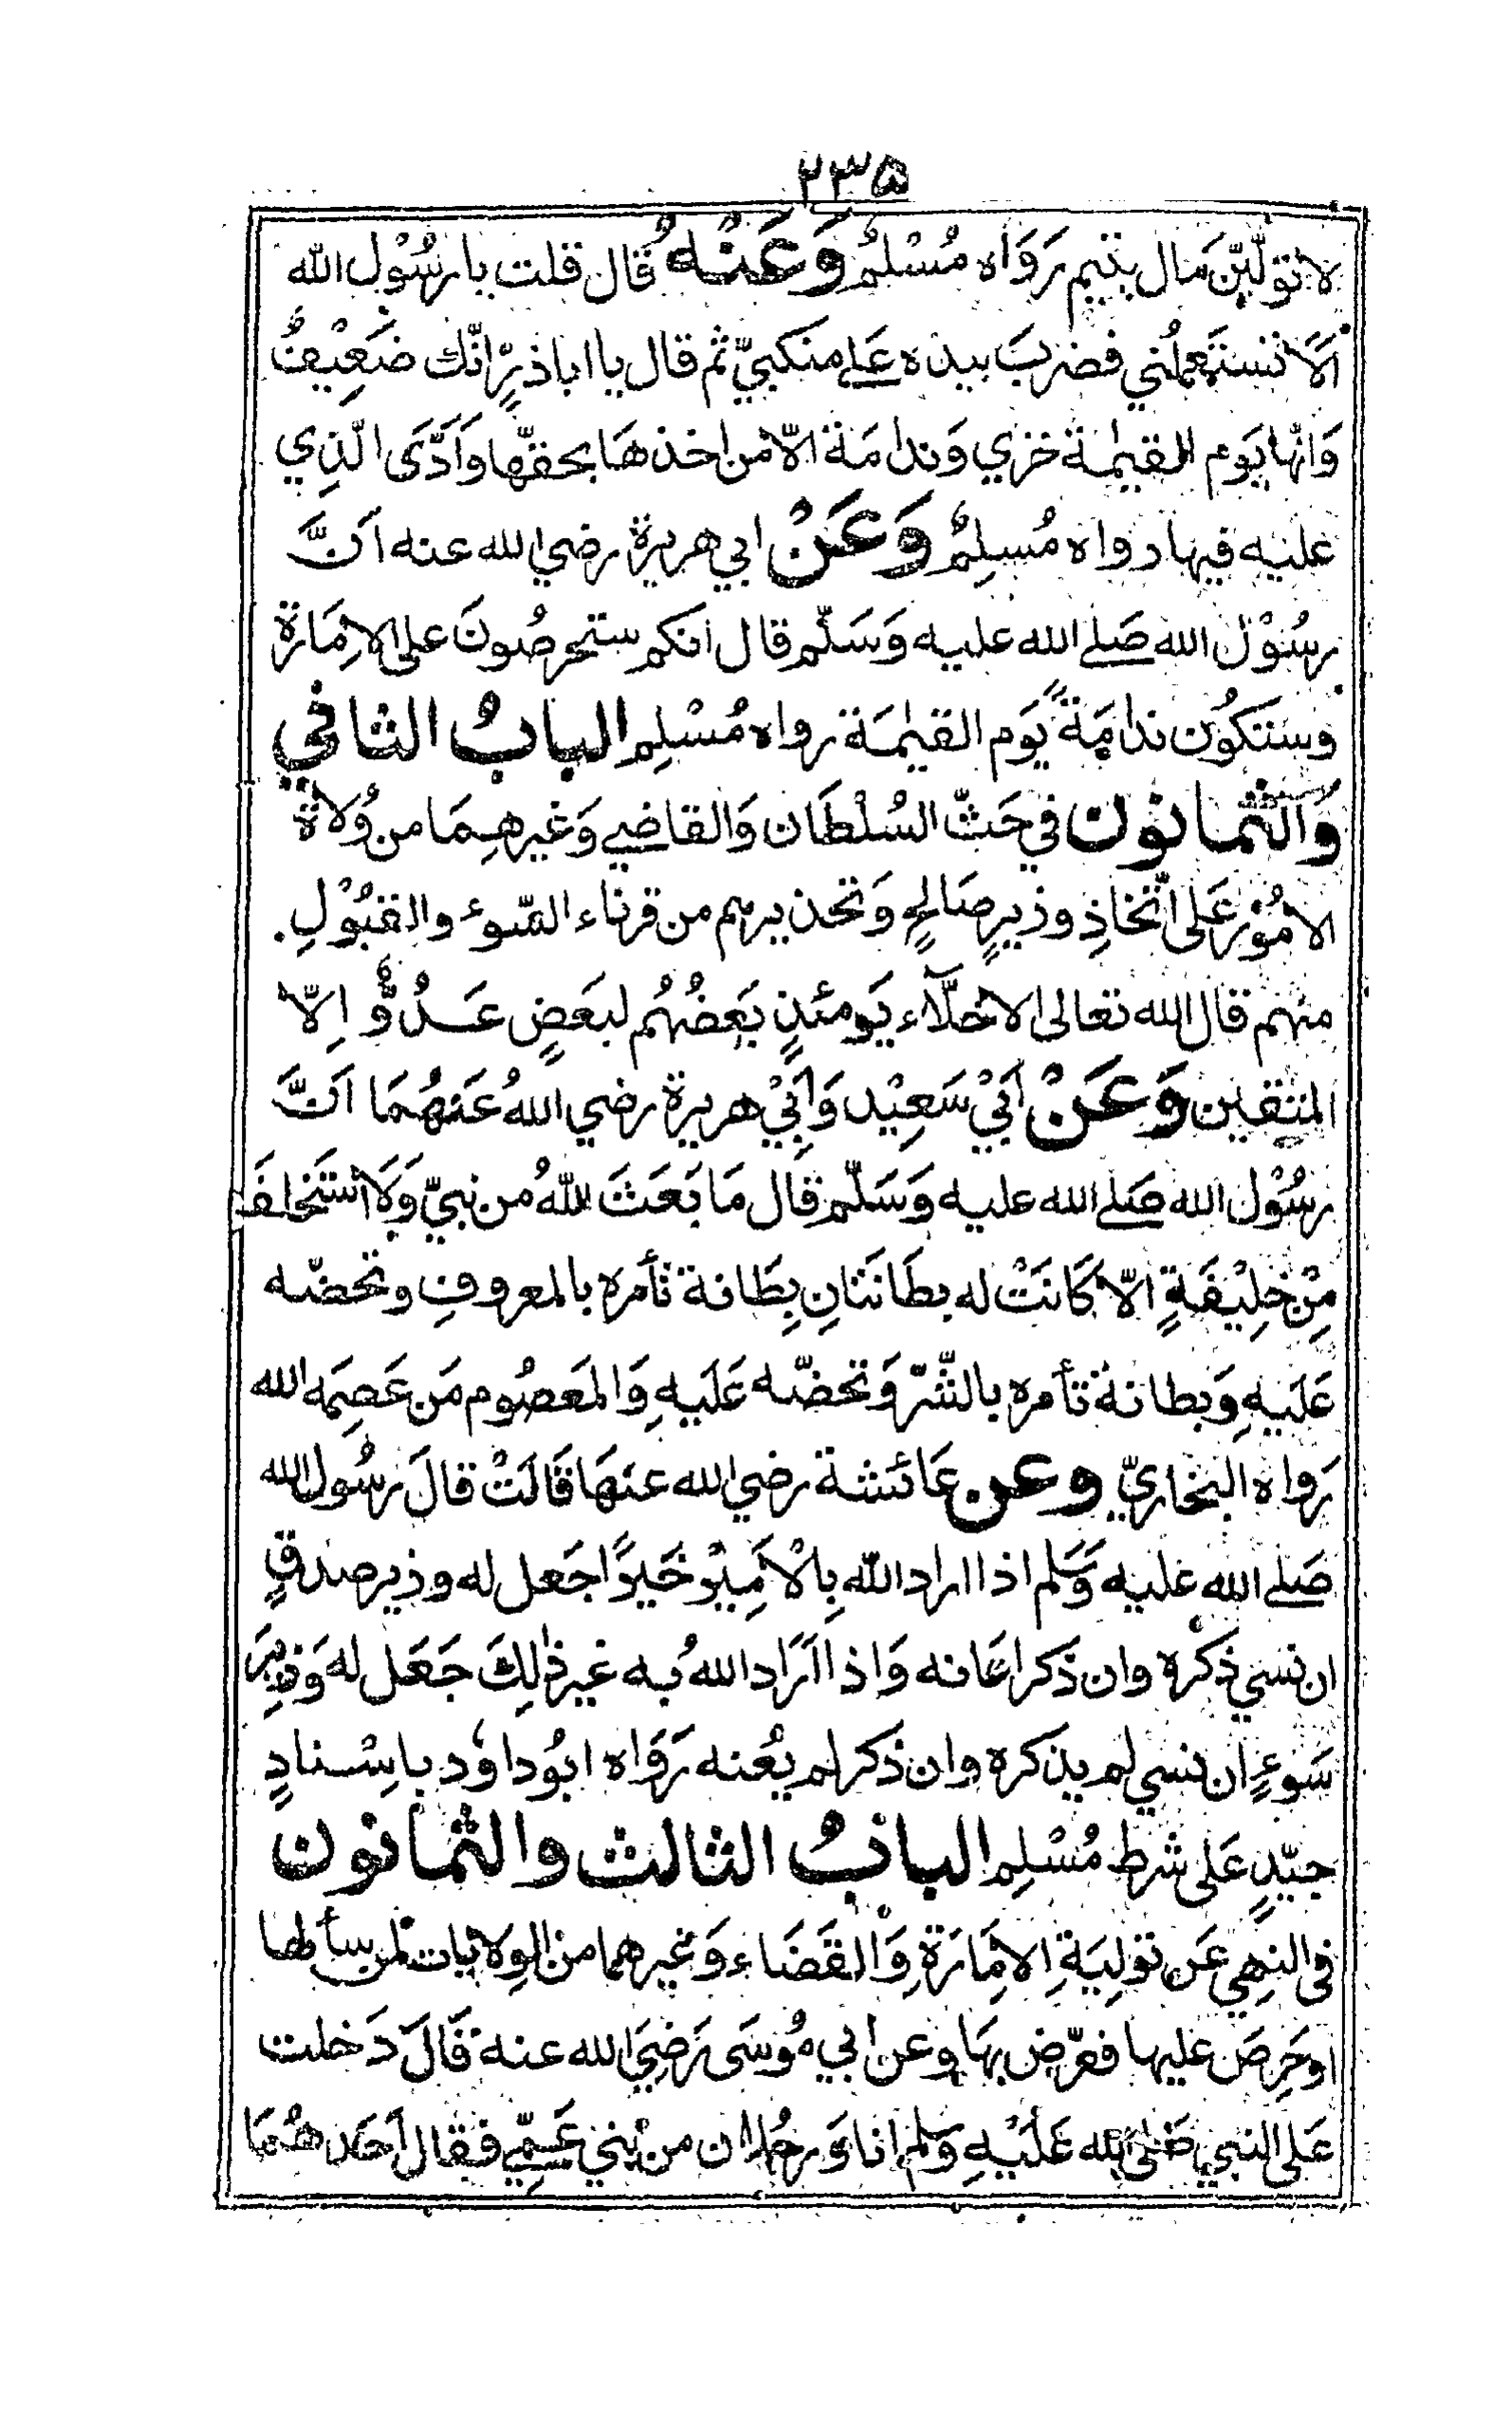 ٢٣٥
لا تولّينّ مال يتيم رَوَاه مُسْلمٌ وَعَنْهُ قال قلت يا رسُوْل الله
اَلَا تستعملُني فضربَ بيده عَلى منكبيّ ثم قال يا اباذرٍّ انّك ضَعِيفٌ
وَانّها يَوم القيٰمة خزي وَندامَة الّا من اخذهَا بحقّها وَاَدَّى الّذِي
عليه فيها رواه مُسلِمٌ وَعَنْ ابي هريرة رضي الله عنه اَنَّ
رسُوْل الله صَلى الله عليه وَسَلّم قال انكم ستحرصُونَ على الامَارة
وستكُون ندامَةً يَوم القيٰمَة رواه مُسْلِم البابُ الثاني
وَالثمانون في حَثّ السُلْطَان وَالقاضي وَغيرهِمَا من وُلاة
الامُوْر عَلى اتّخاذِ وزيرٍ صَالحٍ وَتحذيرهم من قرناء السّوء والقبُوْلِ.
منهم قال الله تعالى الاخلَّاء يَومئذٍ بَعضُهُم لبَعَضٍ عَدُوٌّ اِلّا
المتقين وَعَنْ اَبيْ سَعِيْد وَاَبِيْ هريرة رضي اللهُ عَنهُمَا اَنَّ
رسُوْل الله صَلى الله عليه وَسَلّم قال مَا بَعَثَ اللهُ من نبيّ وَلَا استَخلفَ
مِنْ خلِيْفَةٍ الّا كَانَتْ له بطَانَتَانِ بِطَانة تأمره بالمعروفِ وتحضّه
عَلَيهِ وَبطانة تأمره بالشّرّ وَتحضّه عَلَيهِ وَالمعصُوم مَن عَصِمَه الله
رَواه البخاريّ وعن عَائشة رضي الله عنهَا قَالَتْ قالَ رسُول الله
صَلى الله عليه وَسَلم اذا اراد الله بِالْاَمِيْر خَيرًا جَعل له وزير صدقٍ
ان نسي ذكّره وان ذَكر اعَانه وَاذا اَرَاد اللهُ به غير ذٰلِكَ جَعَل له وَزِيرَ
سَوءٍ ان نسي لم يذكره وان ذكر لم يعُنه رَوَاه ابُو داوٗد باسْنادٍ
جيّدٍ عَلى شرط مُسْلِم البابُ الثالث والثمانون
فى النهي عَن تولِيَةِ الامَارَةِ وَالقَضَاء وَغيرهما من الوِلَايات لمن سألها
او حَرصَ عليها فعرّض بهَا وعن ابي مُوسَى رَضِيَ الله عنه قَالَ دَخلت
عَلى النبي صَلى الله عَلَيْهِ وَسَلم انا وَرجُلان من بْني عَمّي فقال اَحَدهُمَا